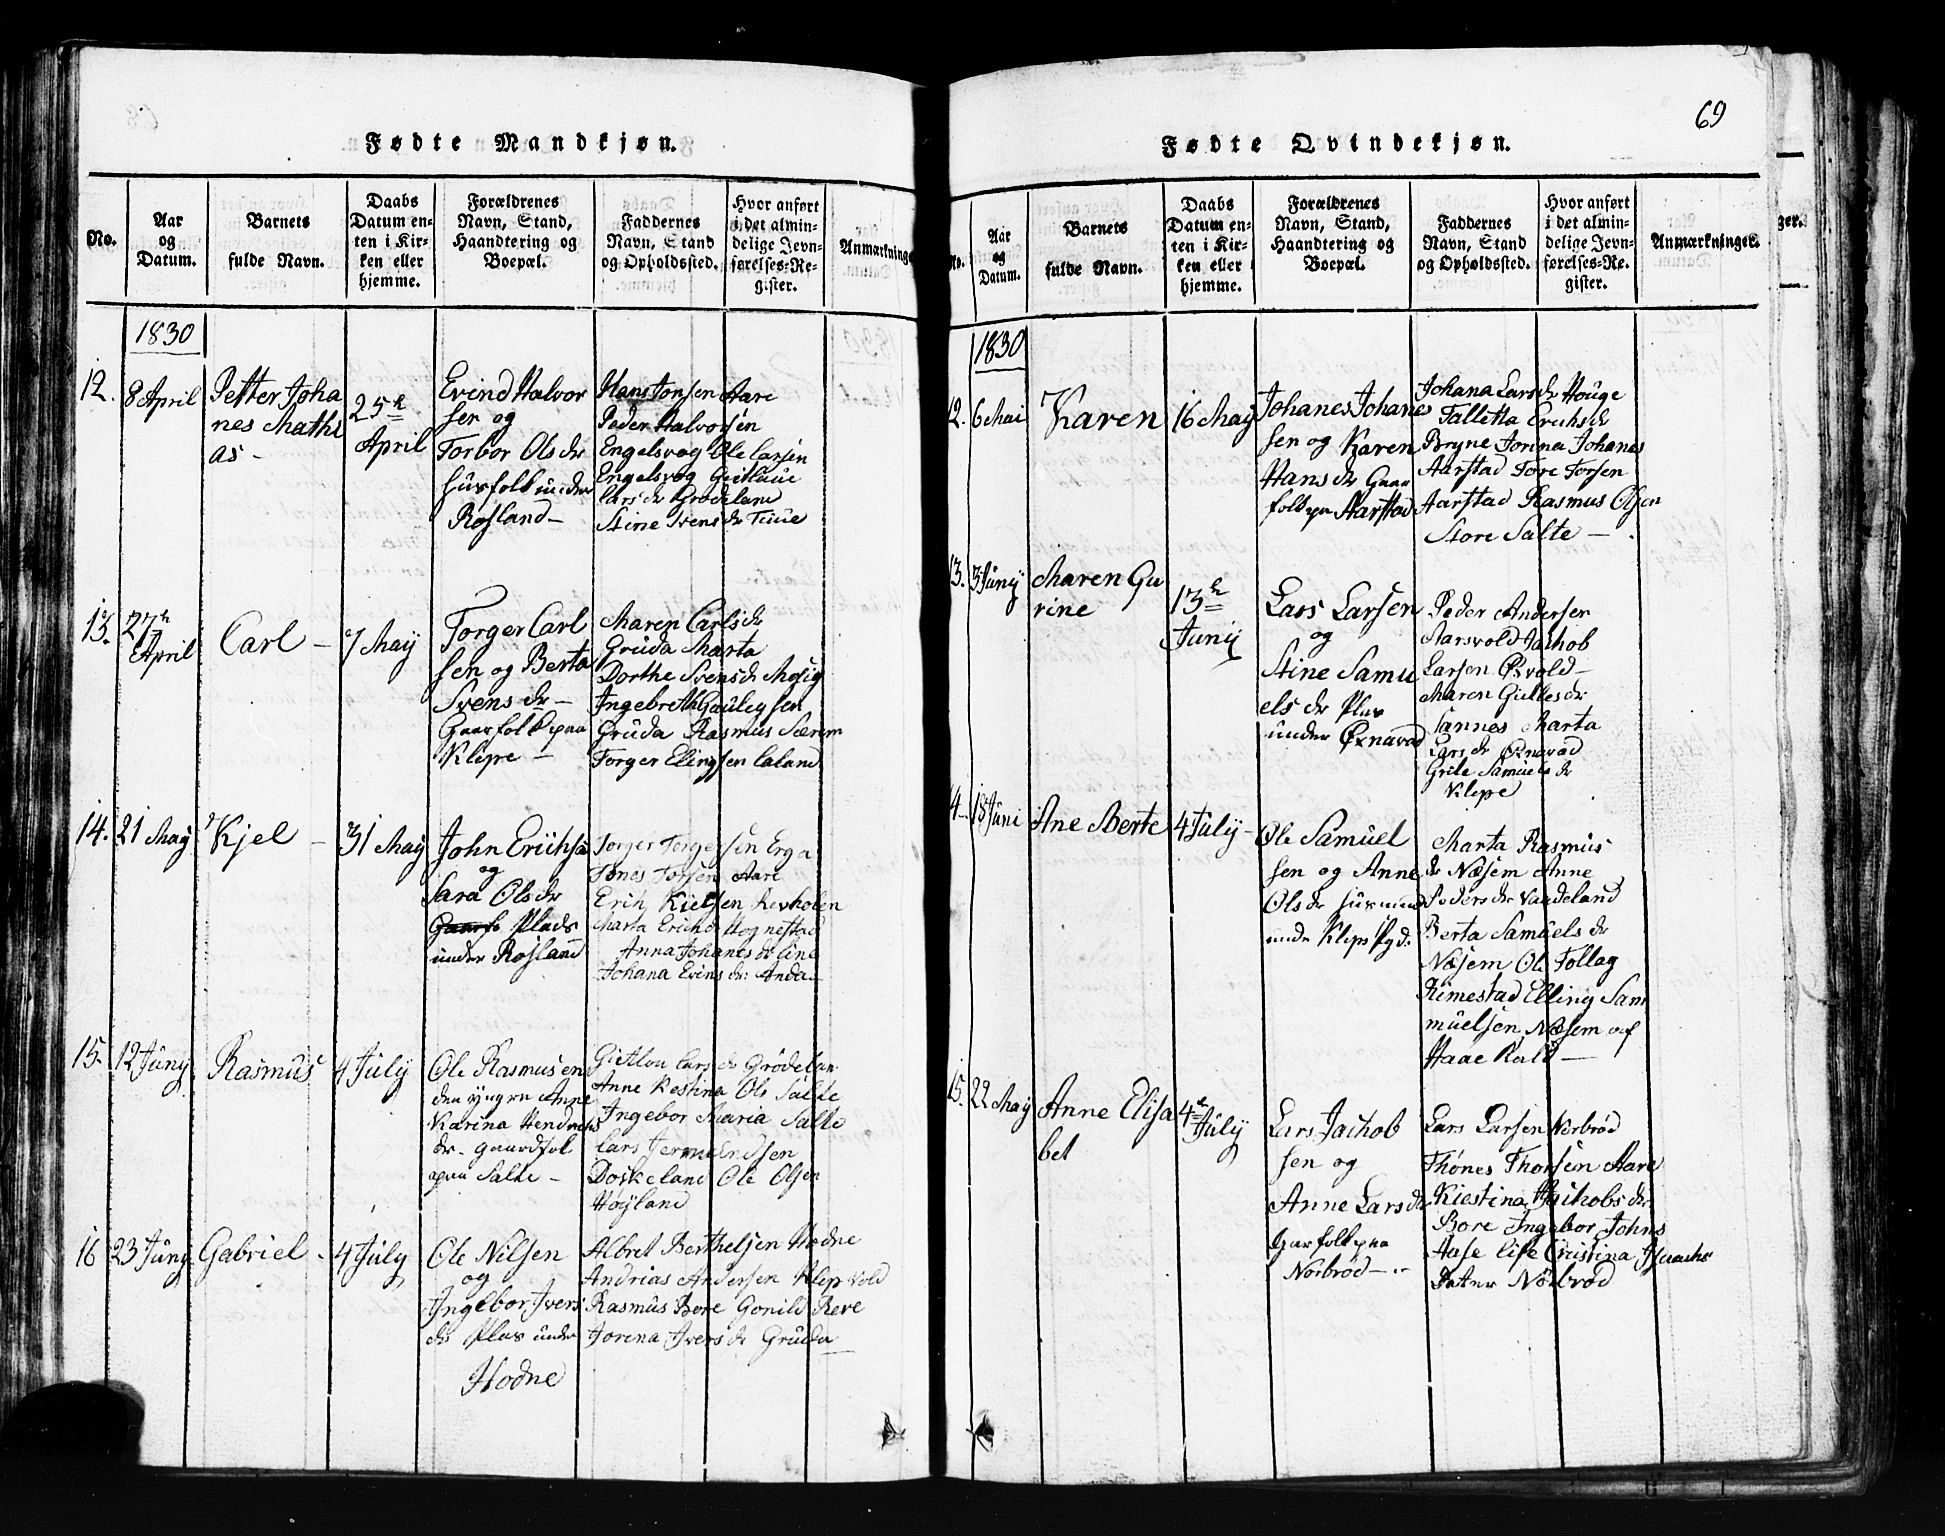 69
Fødte Mandkjøn.
No.
Aar
og
Datum.
Barnets
fulde Navn.
Daabs
Datum en-
ten i Kir-
ken eller
hjemme.
Forældrenes
Navn, Stand,
Haandtering og
Boepæl.
Faddernes
Navn, Stand
og Opholdssted.
Hvor anført
i det almin-
delige Jevn-
førelses-Re-
gister.
Anmærkninge
1830
12.
8 April
Petter Joha
nes Mathi
as-
25de
April
Evind Halvor
sen og
Torbor Olsdr
husfolk under
Rosland-
Hans Jonsen Aare
Peder Halvorsen
Engelsvog Ole Larsen
Engelsvog
Larsdr Grødeland
Stine Svensdr Tiue
13.
27de
April
Carl -
7 May
Torger Carl
sen og Berta
Svensdr -
Gaarfolk paa
Klepe -
Maren Carlsdr
Gruda Marta
Dorthe Svensdr
Ingebreth Gauleysen
Gruda Rasmus Særem
Torger Elingsen Laland
14.
21 May
Kjel -
31 May
John Erichse
og
Sara Olsdr
Plads
under Rosland
Torger Torgersen Erga
Tønes Torsen Aare
Erik Kielsen
Marta Erichsdr Hognestad
Anna Johanesdr Line
Johana Evinsdr Anda-
15.
12 Juny
Rasmus
4 July
Ole Rasmusen
den yngre Anne
Karina Hendrichs
dr- gaardfol
paa Salte -
Larsdr Grødelan
Anne Kestina Ols Salte
Ingebor Maria Salte
Lars Jermundsen
Ole Olsen
Høyland
16
23 Juny
Gabriel -
4 July
Ole Nilsen
og
Ingebor Ivers
dr Plas under
Hodne
Albret Berthelsen Hodne
Andrias Andersen Klep Vold
Rasmus Bore Gonild Reve
Jorina Iversdr Gruda
Fødte Qvindekjøn.
No.
Aar
og
Datum.
Barnets
fulde Navn.
Daabs
Datum en-
ten i Kir-
ken eller
hjemme.
Forældrenes
Navn, Stand,
Haandtering og
Boepæl.
Faddernes
Navn, Stand
og Opholdssted.
Hvor anført
i det almin-
delige Jevn-
førelses-Re-
gister.
Anmærkninger.
ger.
1830
12.
6 Mai
Karen
16 May
Johanes Johane
sen og Karen
Hansdr Gaar
folk paa Aarstad
Johana Larsdr Houge
Talletta Erichsdr
Bryne Jorina Johanes
Aarstad Tore Torsen
Aarstad Rasmus Olsen
Store Salte -
13.
3 Juny
Maren Gu
rine
13de
Juny
Lars Larsen
og
Stine Samu
elsdr Plas
under Øxnavad
Peder Andersen
Aarsvold Jachob
Larsen Øsvold-
Maren
Sannes Marta
Larsdr Øxnavad
Grite Samuelsdr
Klepe
4.
18 Juni
Ane Berte
4 July-
Ole Samuel
sen og Anne
Olsdr husmen
unde Klepe Pgd.
Marta Rasmus
dr Næsem Anne
Pedersdr Vaadeland
Berta Samuelsdr
Næsem Ole Tollag
Rimestad Elling Sam
muelsen Næsem auf
Haae Kald -
15.
22 May
Anne Elisa
bet
4de
July
Lars Jachob
sen og
Anne Larsdr
Gaarfolk paa
Norbrød-
Lars Larsen Norbrød
Thønes Thorsen Aare
Kiestina Jachobsdr
Bore Ingebor Johns
Aase Lise Cristina Isaachs
Dater Norbrød